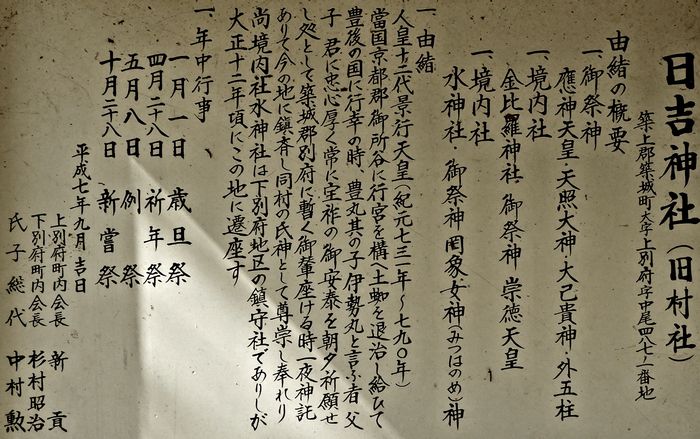 日吉神社(旧村社)
築上郡築城町大字上別府字中尾四八七ノ一番地
由緒の概要
一、御祭神
應神天皇・天照大神・大己貴神・外五柱
一、境内社
金比羅神社・御祭神 崇徳天皇
一、境内社
水神社・御祭神 罔象女神(みつはのめ)神
一、由緒
人皇十二代景行天皇(紀元七三一年〜七九〇年)
當国京都郡御所谷に行宮を構へ土蜘を退治し給ひて
豊後の国に行幸の時、豊丸其の子伊勢丸と言ふ者 父
子 君に忠心厚く常に宝祚の御安泰を朝夕祈願せ
し処として築城郡別府に暫く御輦座ける時一夜神託
ありて今の地に鎮斉し同村の氏神として尊崇し奉れり
尚境内社水神社は下別府地区の鎮守社でありしが
大正十二年頃にこの地に遷座す
一、年中行事
一月一日 歳旦祭
四月二十八日 祈年祭
五月八日 例祭
十月二十八日 新嘗祭
平成七年九月吉日
上別府町内会長 新貢
下別府町内会長 杉村昭治
氏子総代 中村勲